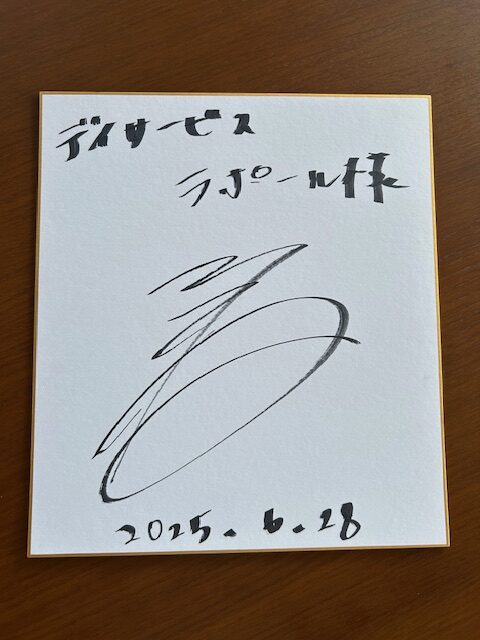 デイサービス
ラポール様
2025.6.28